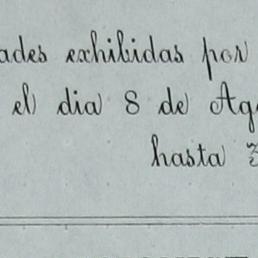 ades exhibidas por
el dia 8 de Ag
hasta